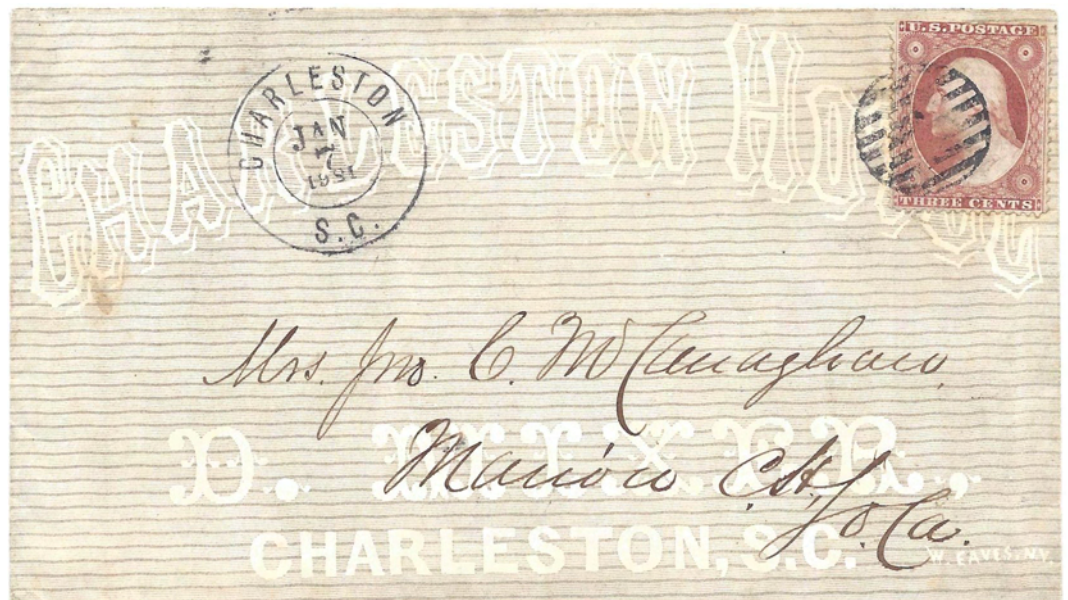 CHARLESTON HOTEL
CHARLESTON
JAN
7
1861
S.C.
U.S. POSTAGE
THREE CENTS
Mrs. Jno. C. McClanaghan
D. MIXER.,
Marion CH
So. Ca.
CHARLESTON, S.C.
W. EAVES. N.Y.